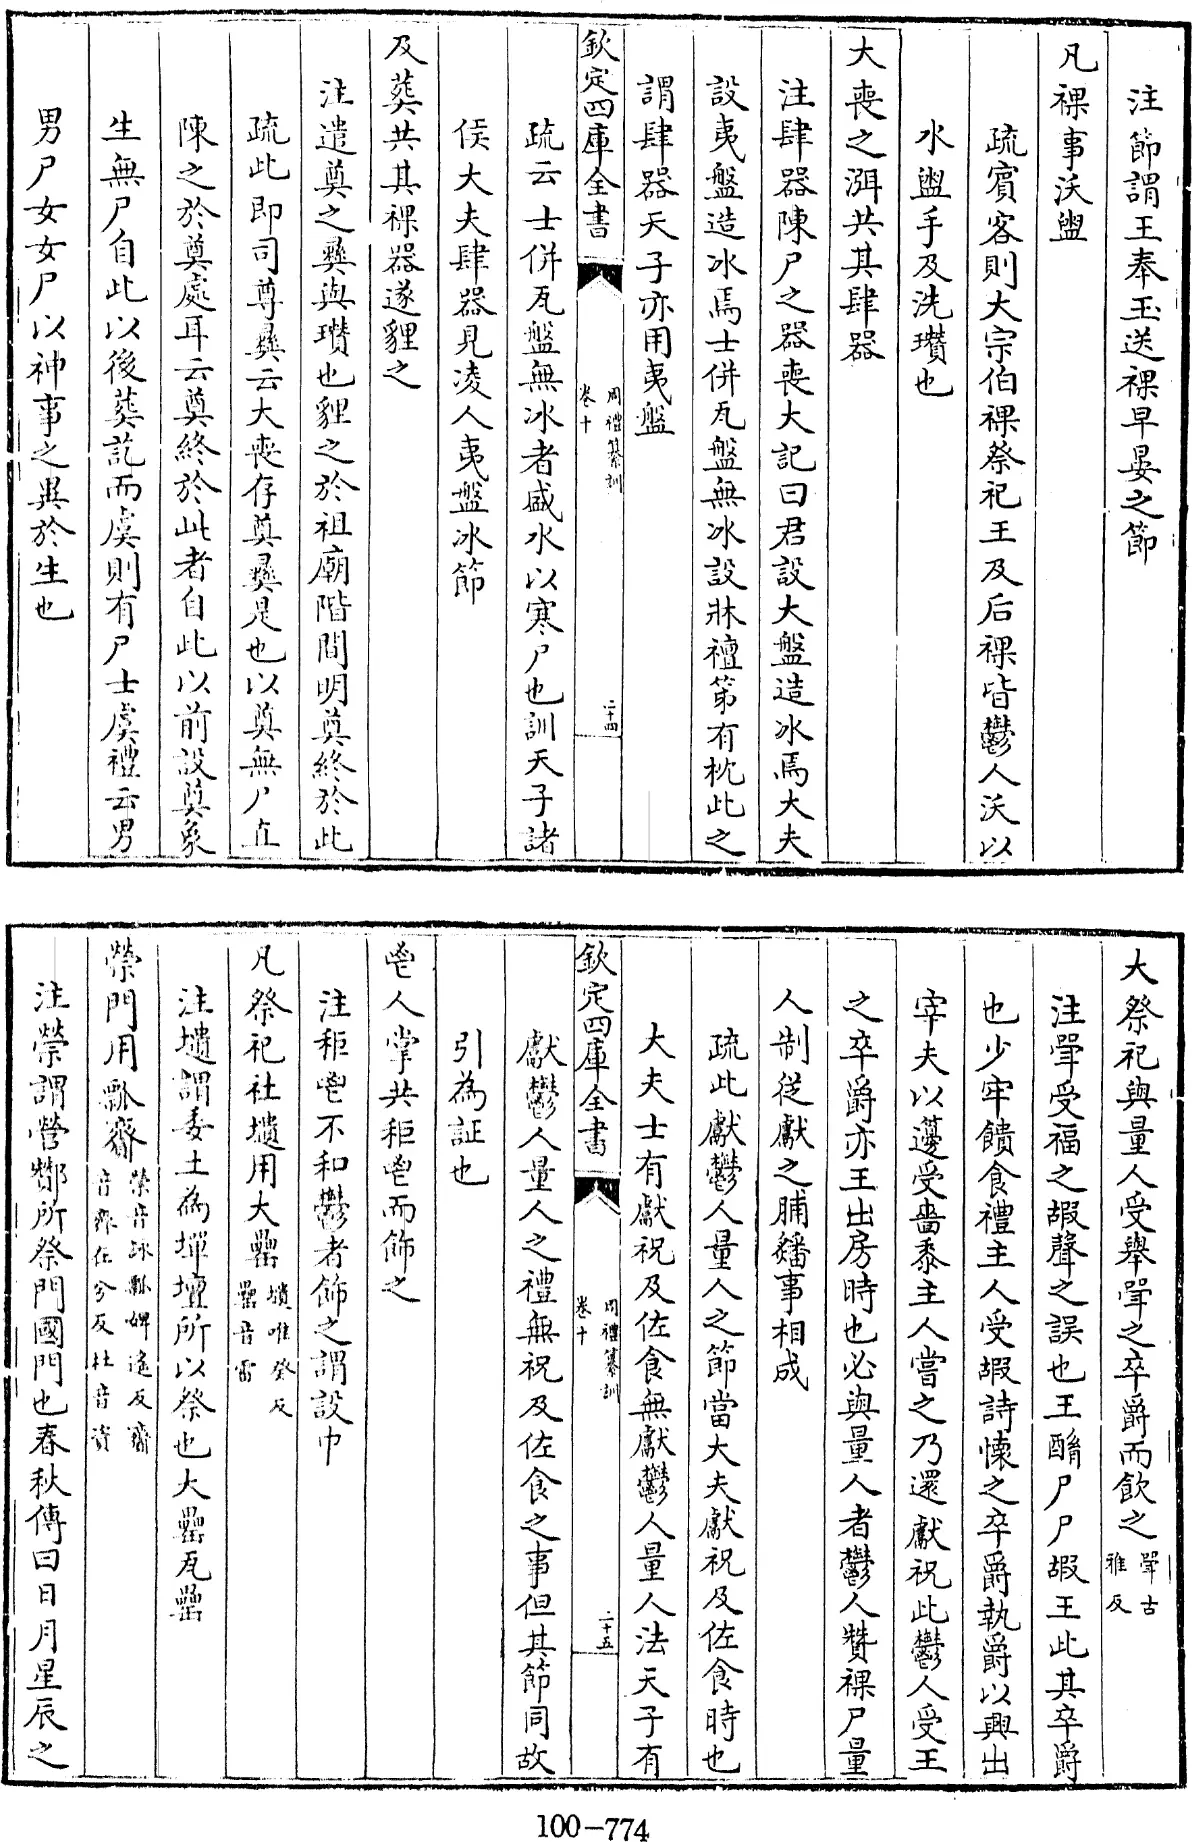 注節謂王奉玉送祼早晏之節
凡祼事沃盥
疏賓客則大宗伯祼祭祀王及后祼皆鬱人沃以
水盥手及洗瓚也
大喪之渳共其肆器
注肆器陳尸之器喪大記曰君設大盤造冰焉大夫
設夷盤造冰焉士併瓦盤無冰設牀襢笫有枕此之
謂肆器天子亦用夷盤
欽定四庫全書
周禮纂訓
卷十
二十四
疏云士併瓦盤無冰者盛水以寒尸也訓天子諸
侯大夫肆器見凌人夷盤冰節
及葬共其祼器遂貍之
注遣奠之彞與瓚也貍之於祖廟階間明奠終於此
疏此即司尊彞云大喪存奠彞是也以奠無尸直
陳之於奠處耳云奠終於此者自此以前設奠象
生無尸自此以後葬訖而虞則有尸士虞禮云男
男尸女女尸以神事之異於生也
大祭祀與量人受舉斝之卒爵而飲之
斝古
雅反
注斝受福之嘏聲之誤也王酳尸尸嘏王此其卒爵
也少牢饋食禮主人受嘏詩懷之卒爵執爵以興出
宰夫以籩受嗇黍主人嘗之乃還獻祝此鬱人受王
之卒爵亦王出房時也必與量人者鬱人贊祼尸量
人制從獻之脯燔事相成
疏此獻鬱人量人之節當大夫獻祝及佐食時也
大夫士有獻祝及佐食無獻鬱人量人法天子有
欽定四庫全書
周禮纂訓
卷十
二十五
獻鬱人量人之禮無祝及佐食之事但其節同故
引為証也
鬯人掌共秬鬯而飾之
注秬鬯不和鬱者飾之謂設巾
凡祭祀社壝用大罍
壝唯癸反
罍音雷
注壝謂委土為墠壇所以祭也大罍瓦罍
禜門用瓢齎
禜音詠瓢婢遙反齎
音齊在兮反杜音資
注禜謂營酇所祭門國門也春秋傳曰日月星辰之
100-774